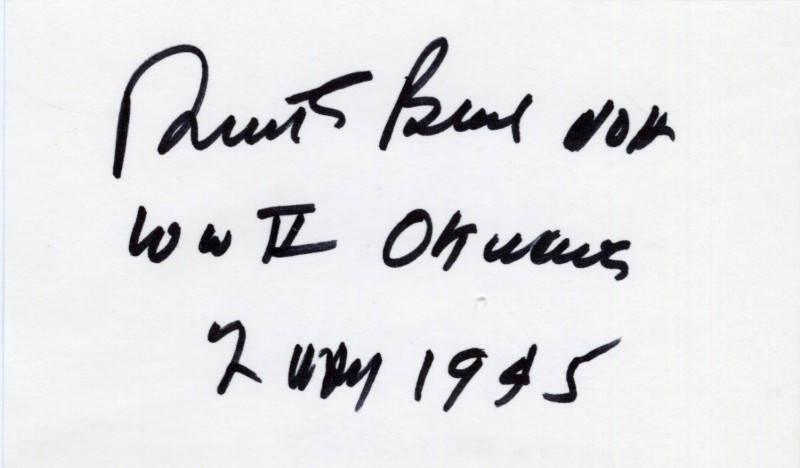 Robt Bush MOH
WW II Okinawa
2 May 1945